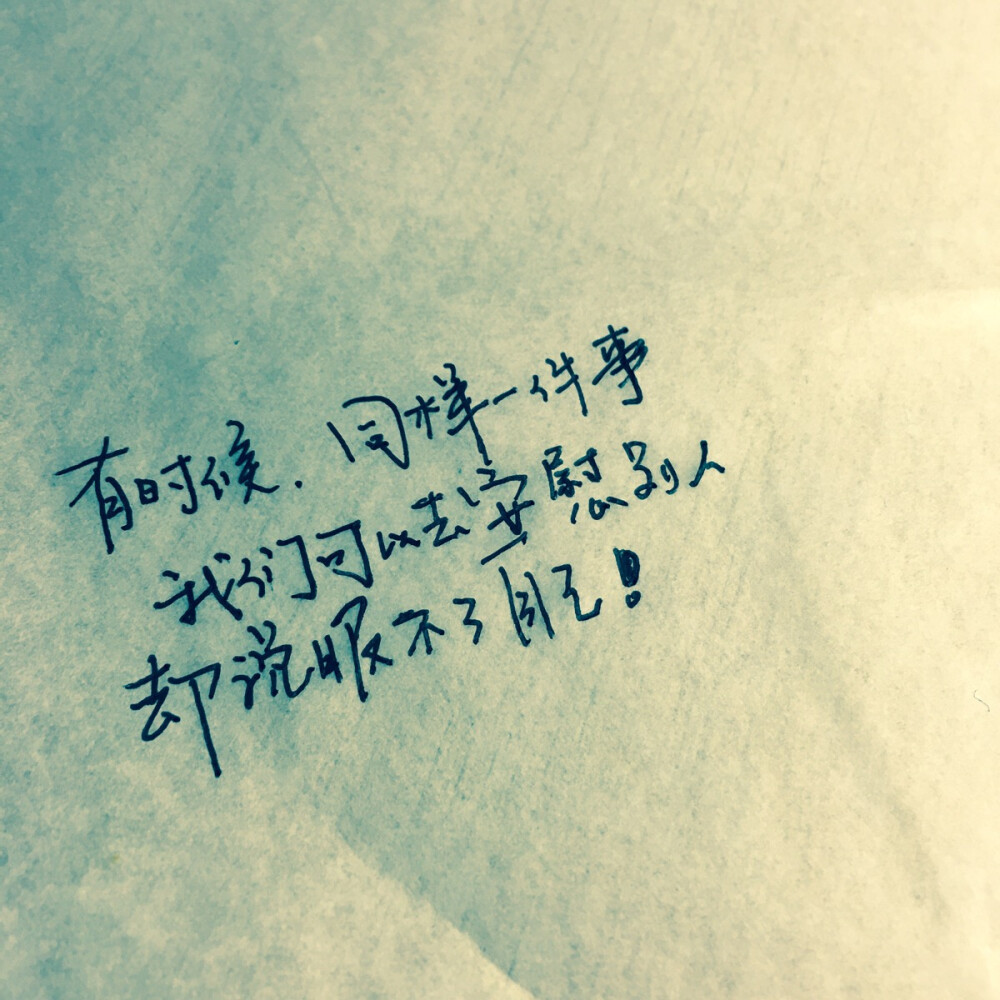 有时候.同样一件事
我们可以去安慰别人
却说服不了自己!